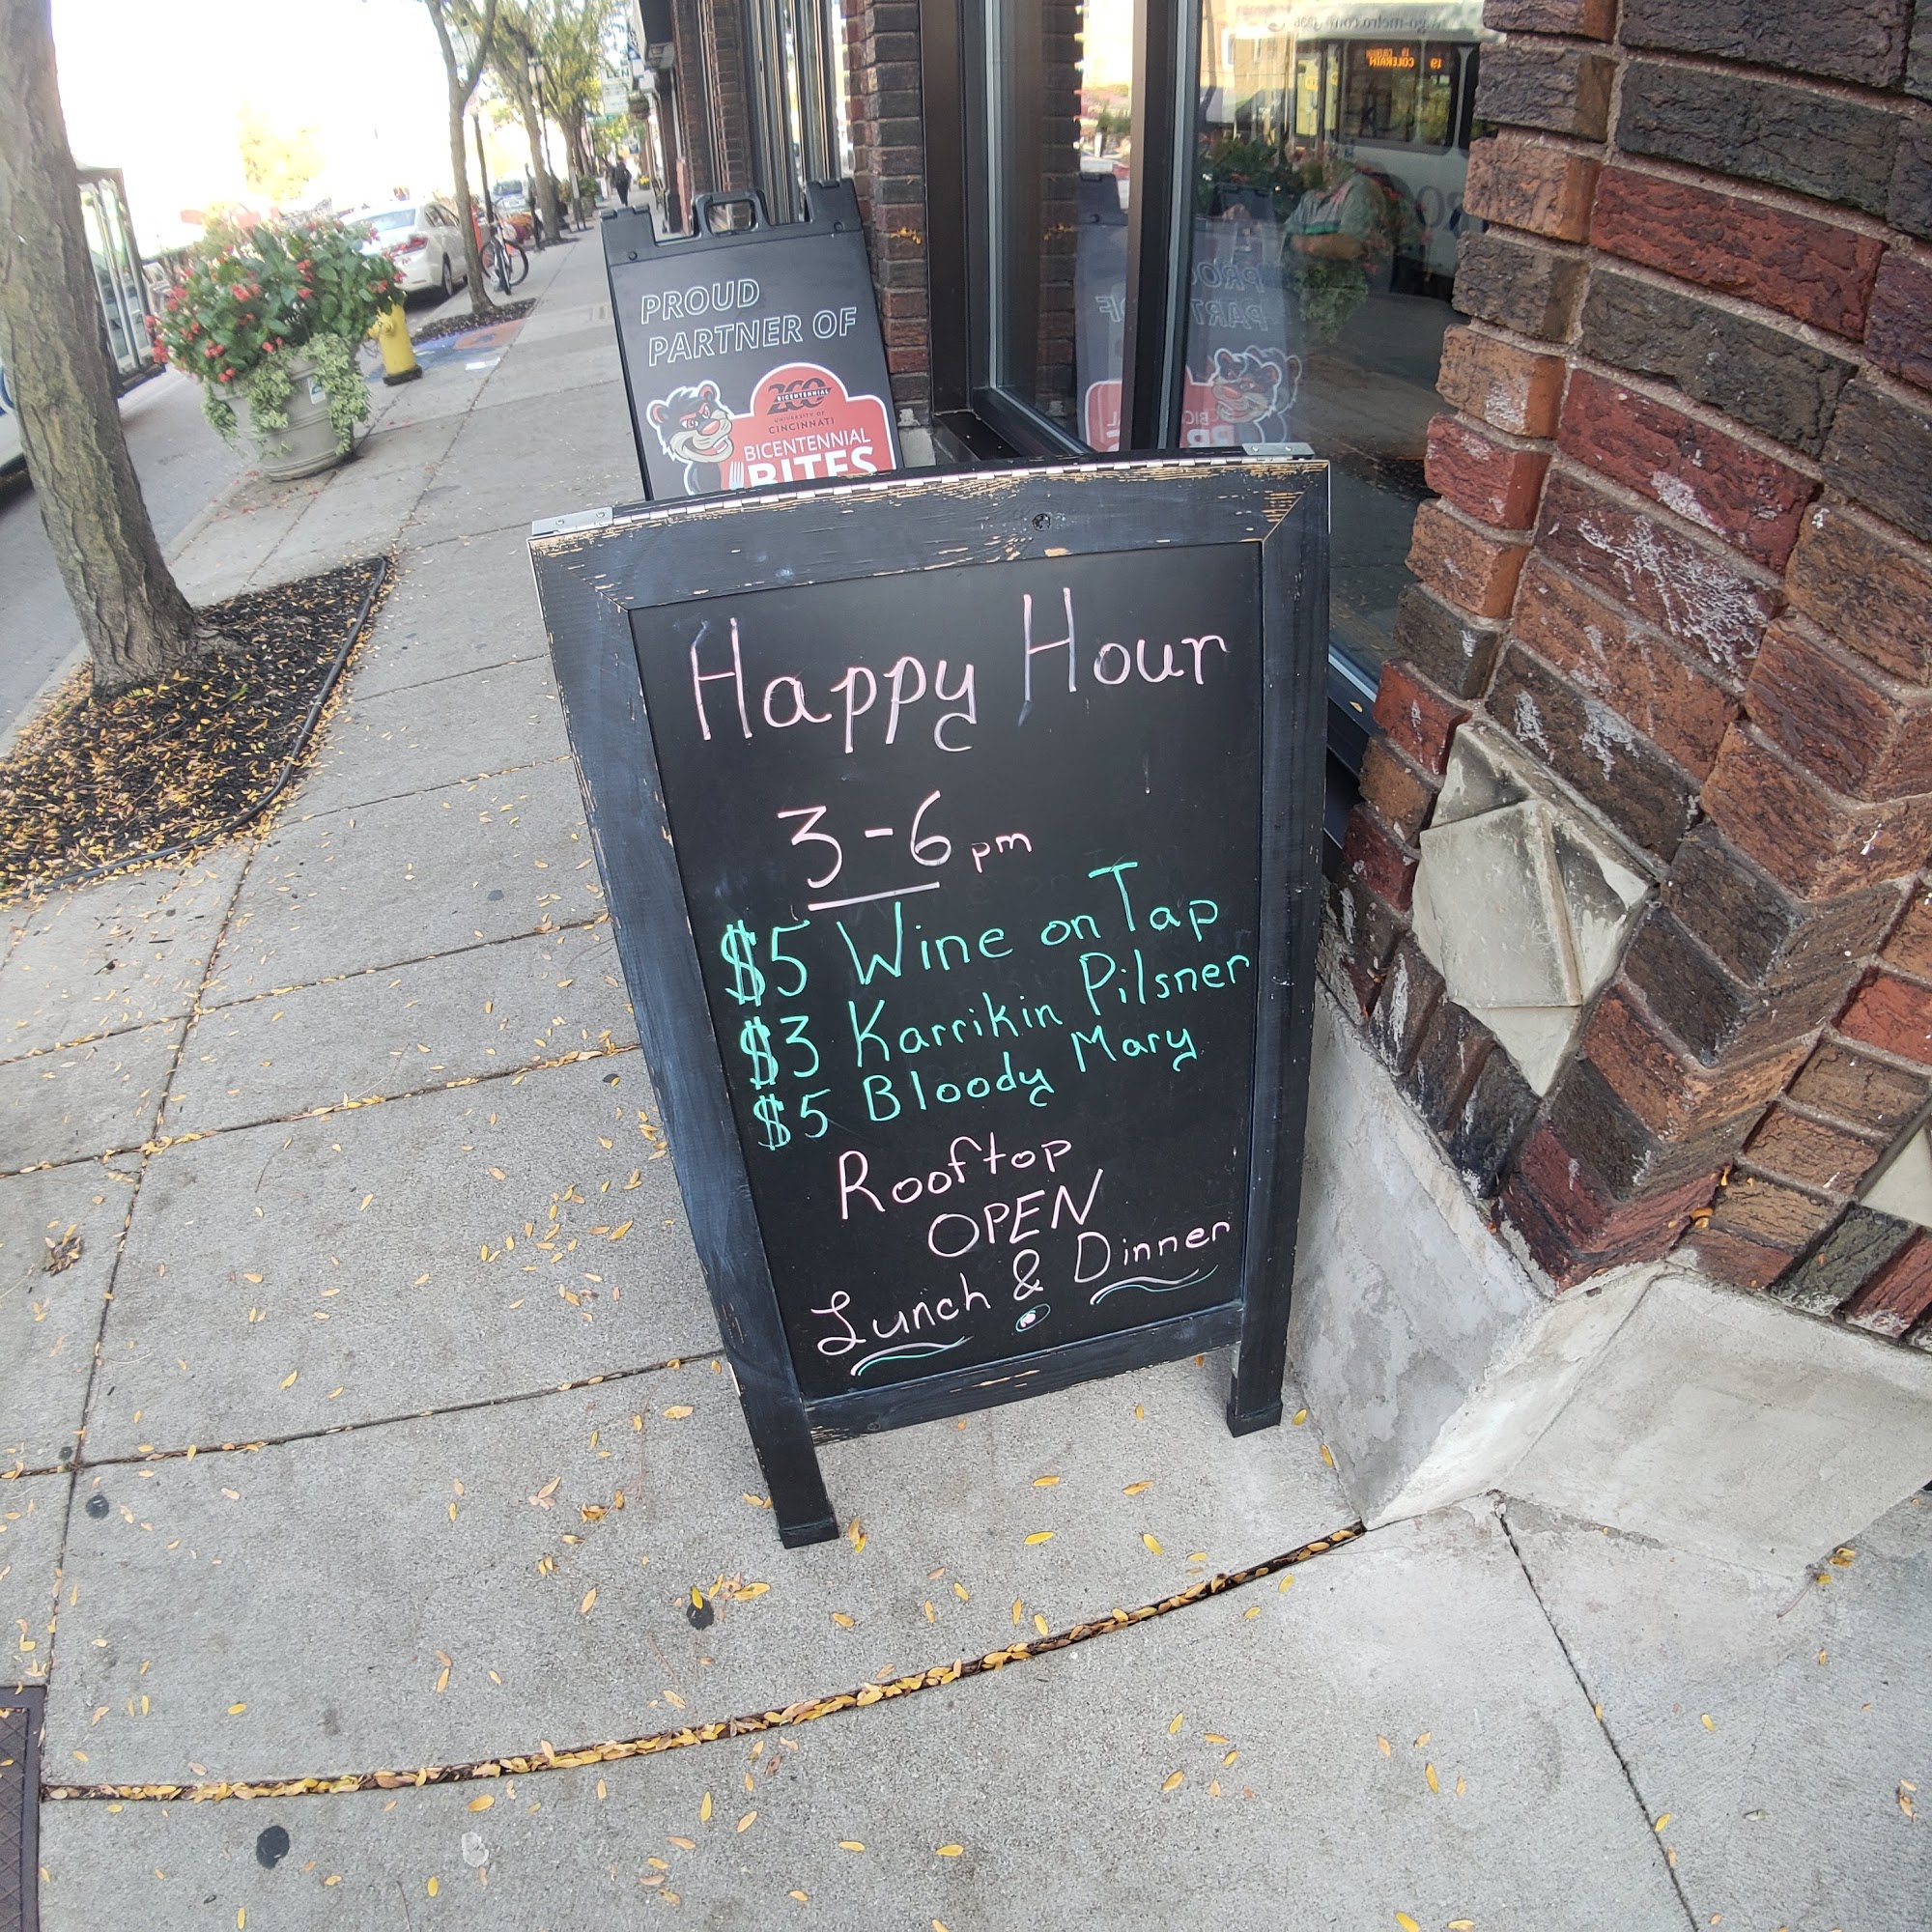 PROUD
PARTNER OF
200
BICENTENNIAL
UNIVERSITY OF
CINCINNATI
BICENTENNIAL
BITES
Happy Hour
3-6 pm
$5 Wine on Tap
$3 Karrikin Pilsner
$5 Bloody Mary
Rooftop
OPEN
Lunch & Dinner
go-metro.com
19 COLERAIN